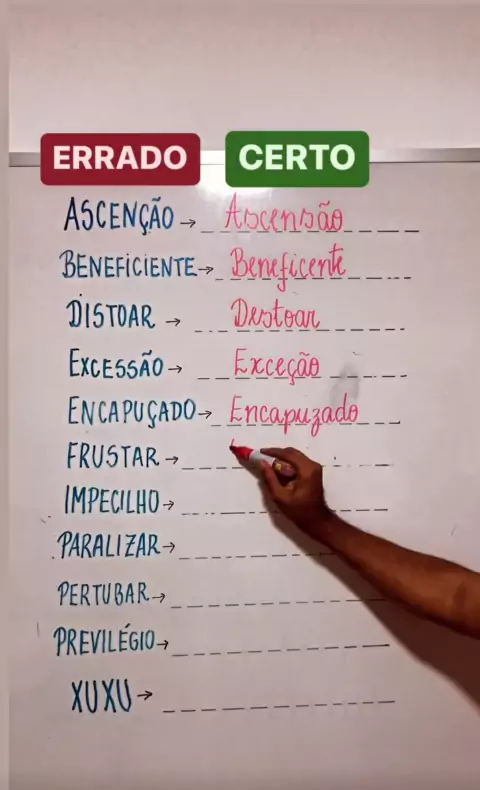 ERRADO CERTO
ASCENÇÃO → Ascensão
BENEFICIENTE → Beneficente
DISTOAR → Destoar
EXCESSÃO → Exceção
ENCAPUÇADO → Encapuzado
FRUSTAR →
IMPECILHO →
PARALIZAR →
PERTUBAR →
PREVILÉGIO →
XUXU →